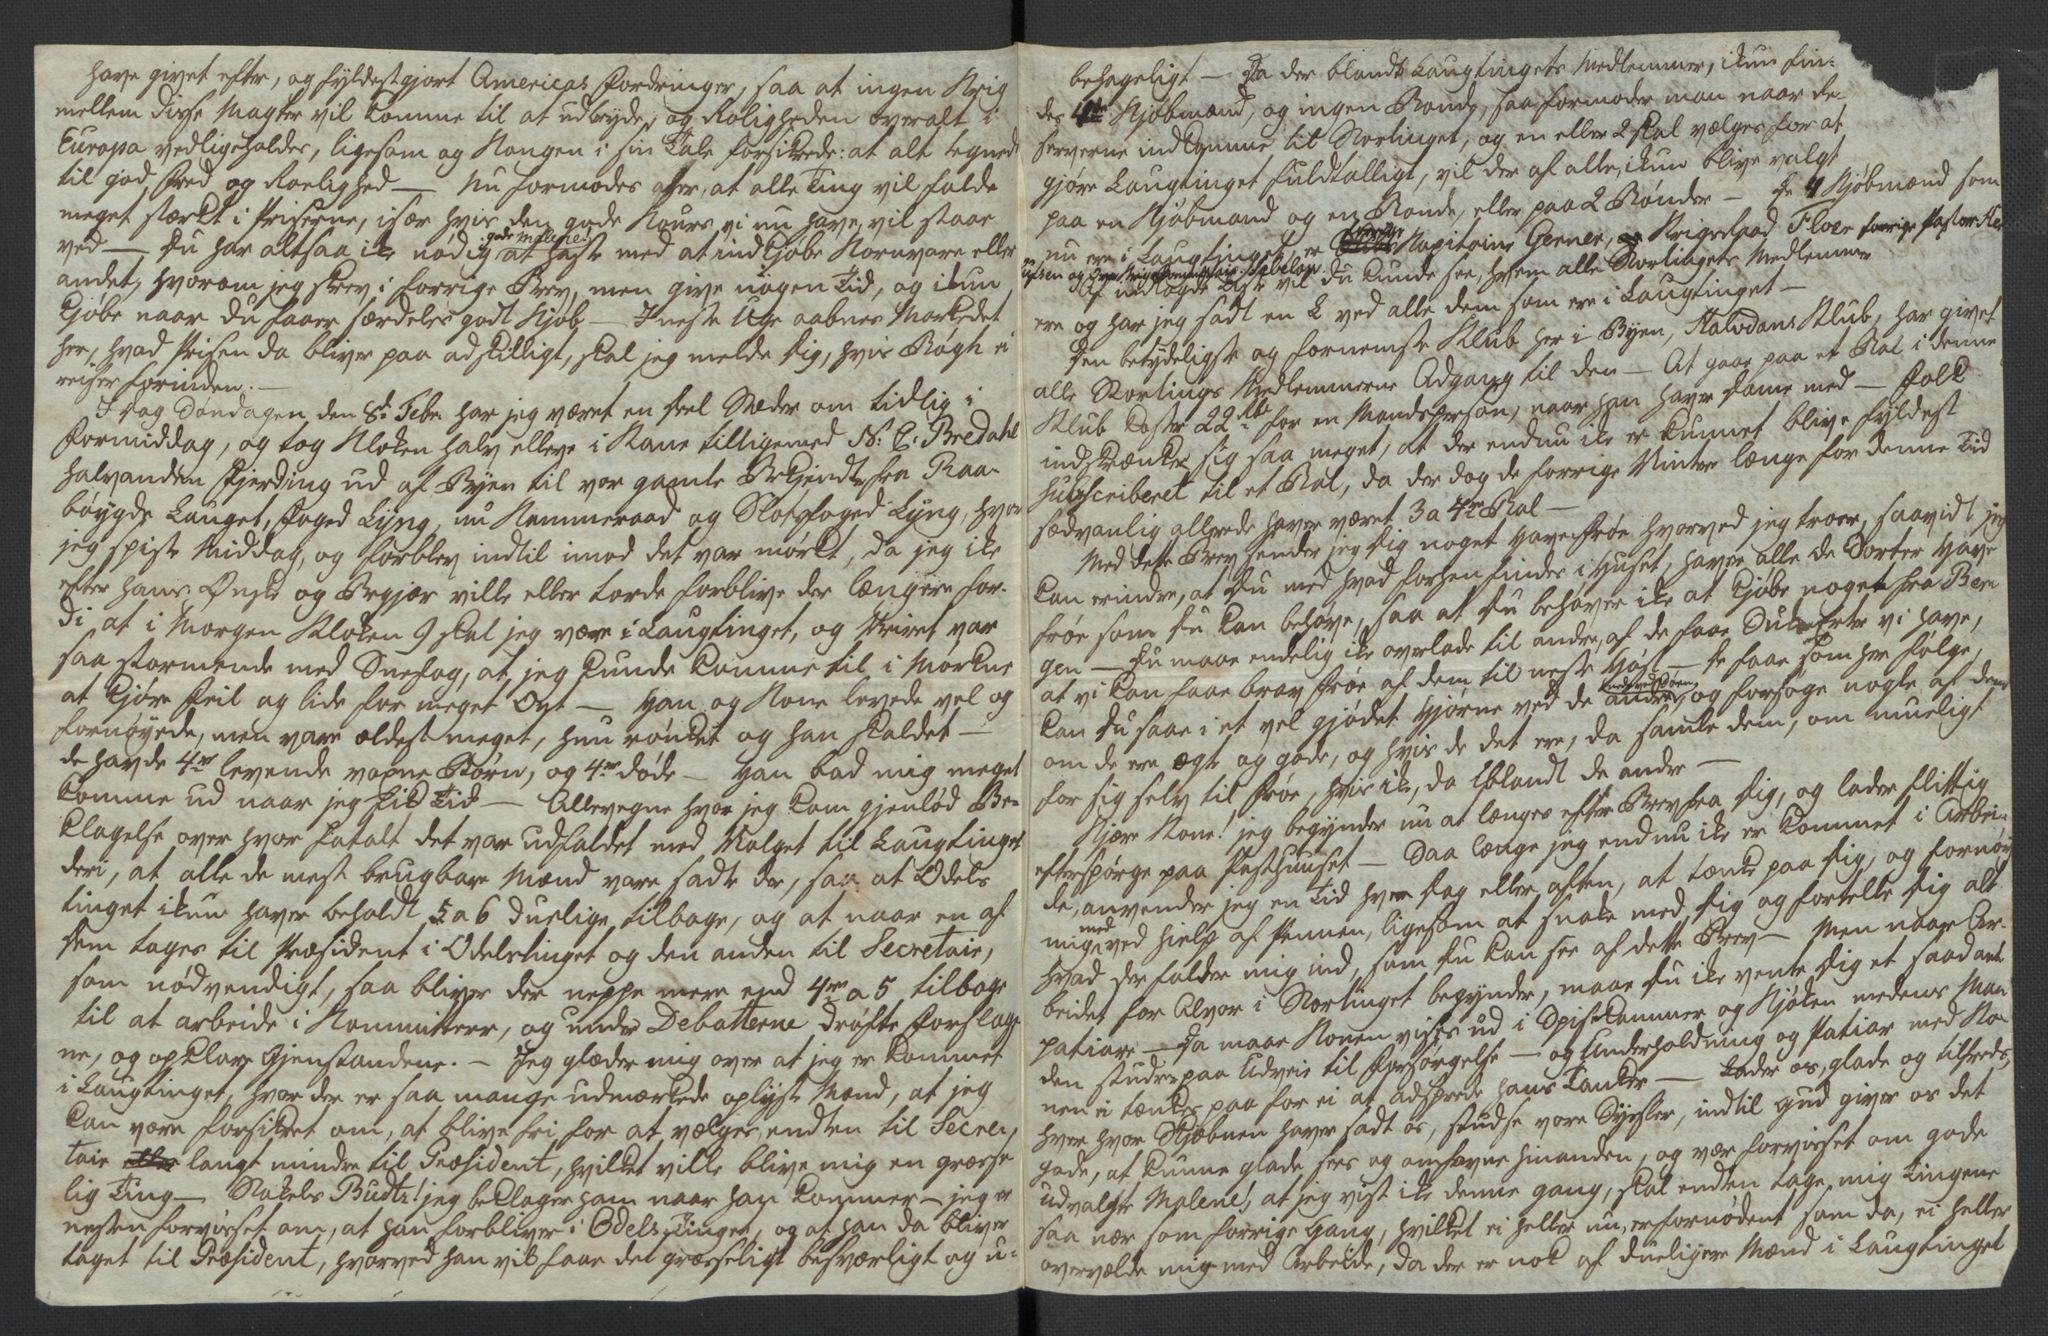 have givet efter, og fyldestgjort Americas Fordringer, saa at ingen Krig
mellem disse Magter vil komme til at udbryde, og Roligheden overalt i
Europa vedligeholdes, ligesom og Kongen i sin Tale forsikrede: at alt tegnede
til god Fred og Roelighed — Nu formodes at alle Ting vil falde
meget stærkt i Priserne, især hvis den gode Kours vi nu have, vil staae
ved — Du har altsaa ike nødig gode Malene at haste med at indkjøbe Kornvare eller
andet, hvorom jeg skrev i forrige Brev, men give nogen Tid, og ikun
kjøbe naar du faaer særdeles godt Kjøb — I neste Uge aabnes Markedet
her, hvad Prisen da bliver paa adskilligt, skal jeg melde dig, hvis Bagh ei
reiser forinden. —
I dag Søndagen den 8de Febr. har jeg været en deel Stæder om tidlig i
Formiddag, og tog Kloken halv elleve i Kane tilligemed N: C: Bredahl
halvanden Fjerding ud af Byen til vor gamle Bekjendter fra Raa-
bøygde Lauget, Foged Lyng, nu Kammeraad og Slotsfoged Lyng, hvor
jeg spiste Middag, og forblev indtil imod det var mørkt, da jeg ike
efter hans Ønske og Begjær ville eller torde forblive der længere for-
di at i Morgen Kloken 9 skal jeg være i Laugtinget, og Veiret var
saa stormende med Snefog, at jeg kunde komme til i Mørkne
at kjøre Feil og lide for meget Ont — Han og Kone levede vel og
fornøyede, men vare ældest meget, hun rønket og han skaldet —
de havde 4re levende voxne Børn, og 4re døde — Han bad mig meget
komme ud naar jeg fik Tid — Allevegne hvor jeg kom gjenlød Be-
klagelse over hvor fatalt det var udfaldet med Valget til Laugtinget
deri, at alle de mest brugbare Mænd vare sadte der, saa at Odels
tinget ikun haver beholdt 5 a 6 duelige tilbage, og at naar en af
dem tages til Præsident i Odelstinget og den anden til Secretair,
som nødvendigt, saa bliver der neppe mere end 4re a 5 tilbage
til at arbeide i Kommitteer, og under Debatterne drøfte Forslage
ne, og opklare Gjenstandene. — Jeg glæder mig over at jeg er kommet
i Laugtinget, hvor der er saa mange udmærkede oplyste Mænd, at jeg
kan være forsikret om, at blive fri for at vælges endten til Secre-
tair langt mindre til Præsident, hvilket ville blive mig en græse
lig Ting — Stakels Budtz! jeg beklager ham naar han kommer — jeg er
nesten forvisset om, at han forbliver i Odels Tinget, og at han da bliver
taget til Præsident, hvorved han vil faae det græsseligt besværligt og u-
behageligt — Da der blandt Laugtingets Medlemmer, ikun fin-
des 4re Kjøbmænd, og ingen Bonde, saa formoder man naar de
serverne indkomme til Stortinget, og en eller 2 skal vælges for at
gjøre Laugtinget fuldtalligt, vil der af alle, ikun blive valgt
paa en Kjøbmand og en Bonde, eller paa 2 Bønder — De 4 Kjøbmænd som
nu ere i Laugtinget er Kapitaine Gerner, Krigsraad Floer forrige Pastor
og Sibbern.
Af indlagde Liste vil du kunde see, hvem alle Stortingets Medlemmer
ere og har jeg sadt en L ved alle dem som ere i Laugtinget —
Den betydeligste og fornemste Klub her i Byen, Halvdans Klub, har givet
alle Stortings Medlemmerne Adgang til den — At gaae paa et Bal i denne
Klub koster 22 Rbd for en Mandsperson, naar han haver Dame med — Folk
indskrænker sig saa meget, at der endnu ike er kunnet blive fyldest
subscriberet til et Bal, da der dog de forrige Vinter længe for denne Tid
sædvanlig allerede haver været 3 a 4re Bal —
Med dette Brev sender jeg dig noget Havefrøe hvorved jeg troer, saavidt jeg
kan erindre, at du med hvad forhen findes i Huset, haver alle de Sorter Have
frøe som du kan behøve, saa at du behøver ike at kjøbe noget fra Ber
gen — Du maae endelig ike overlade til andre, af de faae Sukererter vi have,
at vi kan faae brav Frøe af dem til neste Høst — De faae som her følge,
kan du saae i et vel gjødet Hjørne ved de andre, og forsøge nogle af dem
om de ere ægte og gode, og hvis de det ere, da samle dem, om mueligt
for sig selv til Frøe, hvis ike, da iblandt de andre —
Kjære Kone! jeg begynder nu at længes efter Brev fra dig, og lader flittig
efterspørge paa Posthuuset — Saa længe jeg endnu ike er kommet i Arbei-
de, anvender jeg en Tid hver Dag eller aften, at tænke paa dig, og fornøy
mig med ved Hielp af Pennen, ligesom at snake med dig og fortelle dig alt
hvad der falder mig ind, som du kan see af dette Brev — Men naar Ar-
beidet for Alvor i Stortinget begynder, maae du ike vente dig et saadant
patiare — Da maae Konen vises ud i Spisekammer og Kjøken medens Man
den studerer paa Udveie til Forsørgelse — og Underholdning og Patiar med Ko-
nen ei tænkes paa for ei at adsprede hans Tanker — Lader os, glade og tilfreds,
hver hvor Skjæbnen haver sadt os, studse vore Sysler, indtil Gud giver os det
gode, at kunne glade sees og omfavne hinanden, og vær forvisset om gode
udvalgte Malene!, at jeg vist ike denne gang, skal endten tage mig Tingene
saa nær som forrige Gang, hvilket ei heller nu er fornødent som da, ei heller
overvælde mig med Arbeide, da der er nok af dueligere Mænd i Laugtinget